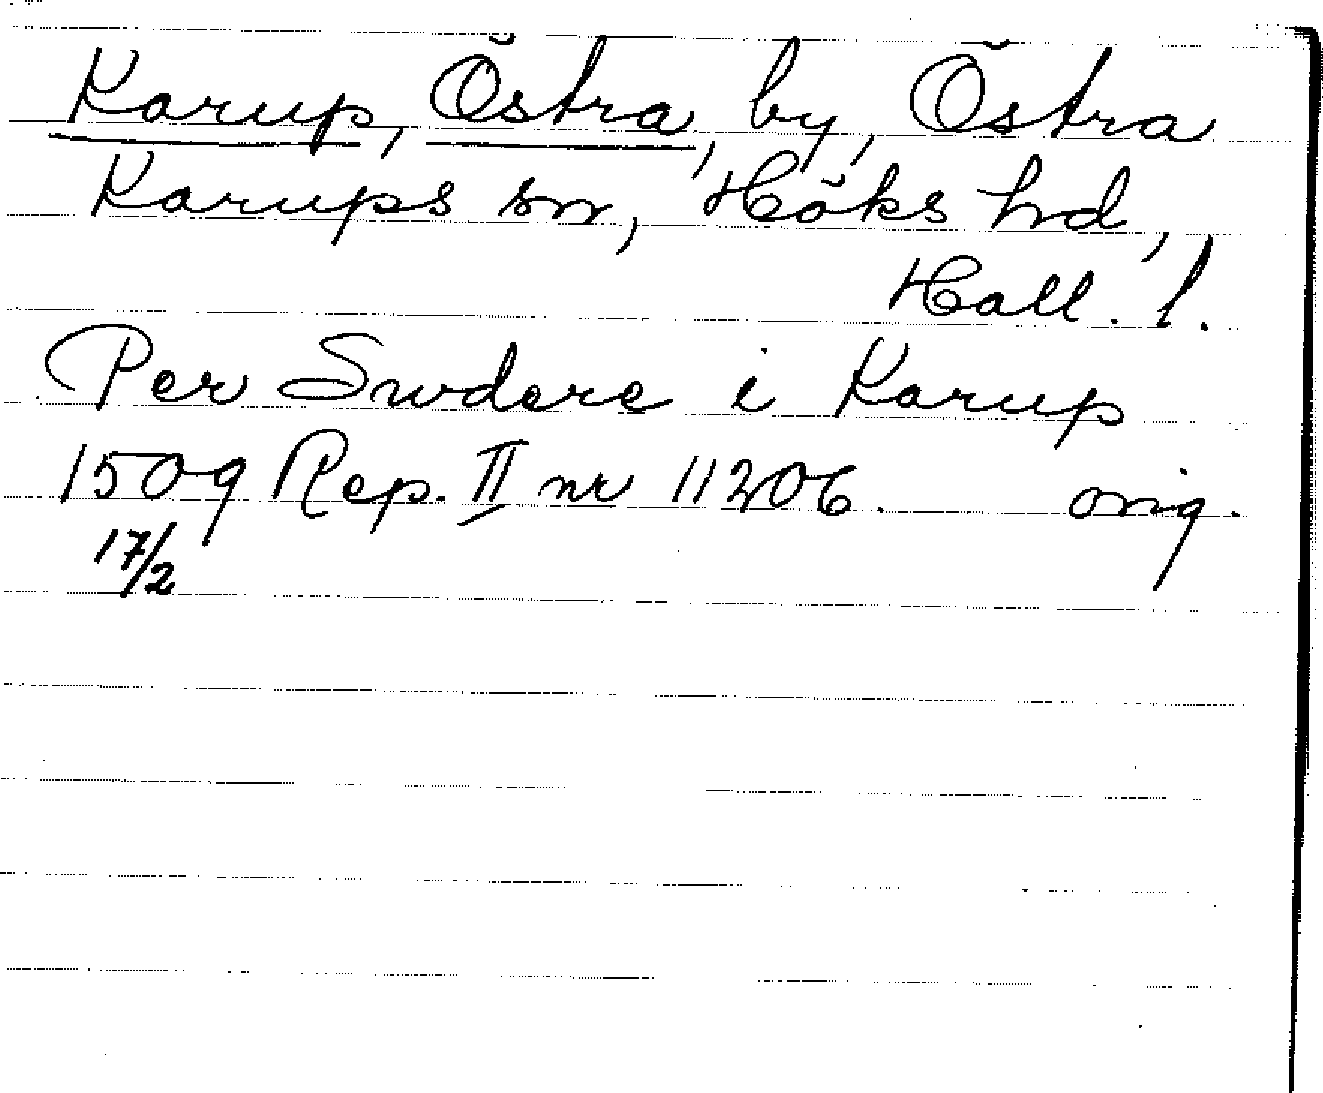 Karup, Östra, by, Östra
Karups sn, Höks hd,
Hall. l.
Per Swdere i Karup
1509 Rep. II nr 11206. orig.
17/2